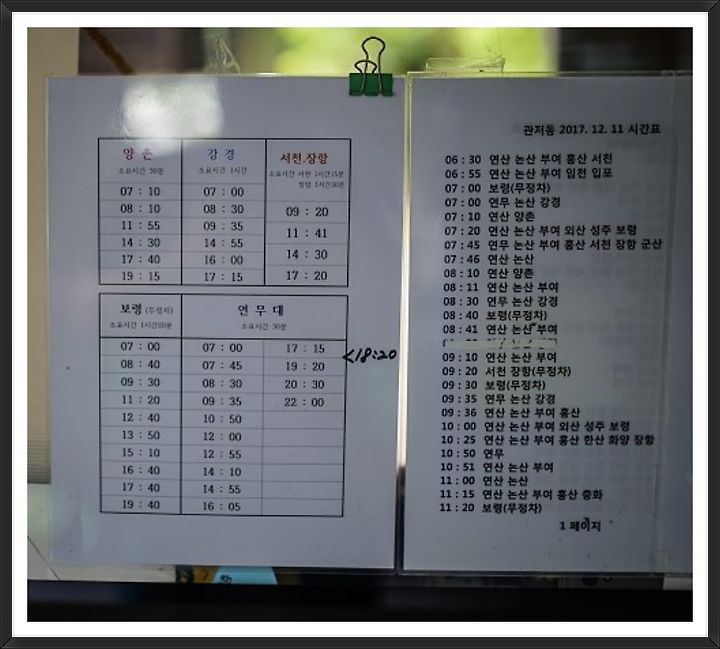 양 촌 강 경 서천.장항
소요시간 30분 소요시간 1시간 소요시간 서천 1시간15분
장항 1시간30분
07 : 10 07 : 00
08 : 10 08 : 30 09 : 20
11 : 55 09 : 35 11 : 41
14 : 30 14 : 55 14 : 30
17 : 40 16 : 00
19 : 15 17 : 15 17 : 20
보령 (무정차) 연 무 대
소요시간 1시간20분 소요시간 30분
07 : 00 07 : 00 17 : 15
<18:20
08 : 40 07 : 45 19 : 20
09 : 30 08 : 30 20 : 30
11 : 20 09 : 35 22 : 00
12 : 40 10 : 50
13 : 50 12 : 00
15 : 10 12 : 55
16 : 40 14 : 10
17 : 40 14 : 55
19 : 40 16 : 05
관저동 2017. 12. 11 시간표
06 : 30 연산 논산 부여 홍산 서천
06 : 55 연산 논산 부여 임천 입포
07 : 00 보령(무정차)
07 : 00 연무 논산 강경
07 : 10 연산 양촌
07 : 20 연산 논산 부여 외산 성주 보령
07 : 45 연무 논산 부여 홍산 서천 장항 군산
07 : 46 연산 논산
08 : 10 연산 양촌
08 : 11 연산 논산 부여
08 : 30 연무 논산 강경
08 : 40 보령(무정차)
08 : 41 연산 논산 부여
09 : 10 연산 논산 부여
09 : 20 서천 장항(무정차)
09 : 30 보령(무정차)
09 : 35 연무 논산 강경
09 : 36 연산 논산 부여 홍산
10 : 00 연산 논산 부여 외산 성주 보령
10 : 25 연산 논산 부여 홍산 한산 화양 장항
10 : 50 연무
10 : 51 연산 논산 부여
11 : 00 연산 논산
11 : 15 연산 논산 부여 홍산
11 : 20 보령(무정차)
1 페이지